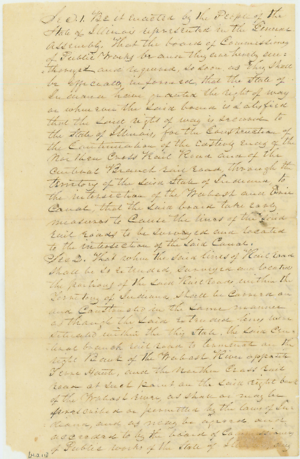 Sec 1. Be it enacted by the People of the
State of Illinois represented in the General
Assembly, That the board of Commissioners
of Public Works be and they are hereby au-
thorized and required, as soon as they shall
be officially informed that the State of
Indiana have granted the right of way
or whenever the said board is satisfied
that the said right of way is promised to
the State of Illinois, for the Construction of
the Continuation of the Eastern ends of the
Northern Cross Rail Road and of the
Central Branch rail road, through the
territory of the said State of Indiana to
the intersection of the Wabash and Erie
Canal, that the said board take early
measures to Cause the lines of the said
rail roads to be surveyed and located
to the intersection of the said Canal.
Sec 2. That when the said lines of Rail road
shall be so extended, surveyed and located
the portions of the said Rail roads within the
State of Indiana shall be carried on
and Constructed in the same manner
as though the said extended lines were
situated within the this State, the said Cen-
tral branch rail road to terminate on the
right Bank of the Wabash River opposite
Terre Haute, and the Northern Cross Rail
road at such point on the said right bank
of the Wabash river, as shall or may be
prescribed or permitted by the laws of In-
diana, and as may be agreed and
acceded to by the board of Commissioners
of Public works of the State of